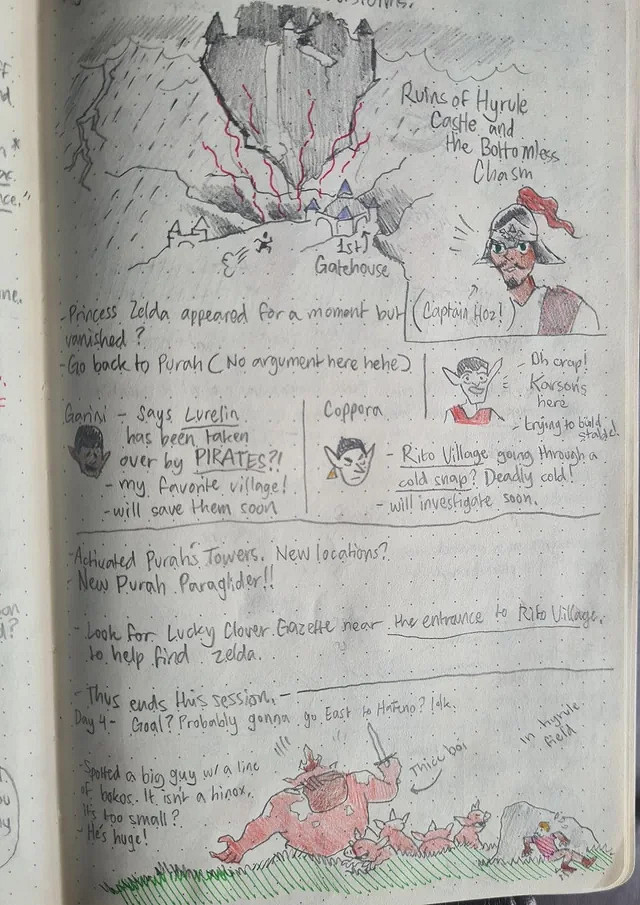 Ruins of Hyrule
Castle and
the Bottomless
Chasm
1st
Gatehouse
(Captain Hoz!)
- Princess Zelda appeared for a moment but
vanished?
- Go back to Purah (No argument here hehe)
- Oh crap!
Karson's
here
- trying to build
stable!
Garini - Says Lurelin
has been taken
over by PIRATES?!
- my favorite village!
- will save them soon
Coppora
- Rito Village going through a
cold snap? Deadly cold!
- will investigate soon.
- Activated Purah's Towers. New locations?
- New Purah Paraglider!!
- Look for Lucky Clover Gazette near the entrance to Rito Village.
to help find Zelda.
- Thus ends this session. -
Day 4 - Goal? Probably gonna go East to Hateno? Idk.
- Spotted a big guy w/ a line
of bokos. It isn't a hinox.
It's too small?
- He's huge!
Thicc boi
in hyrule
field